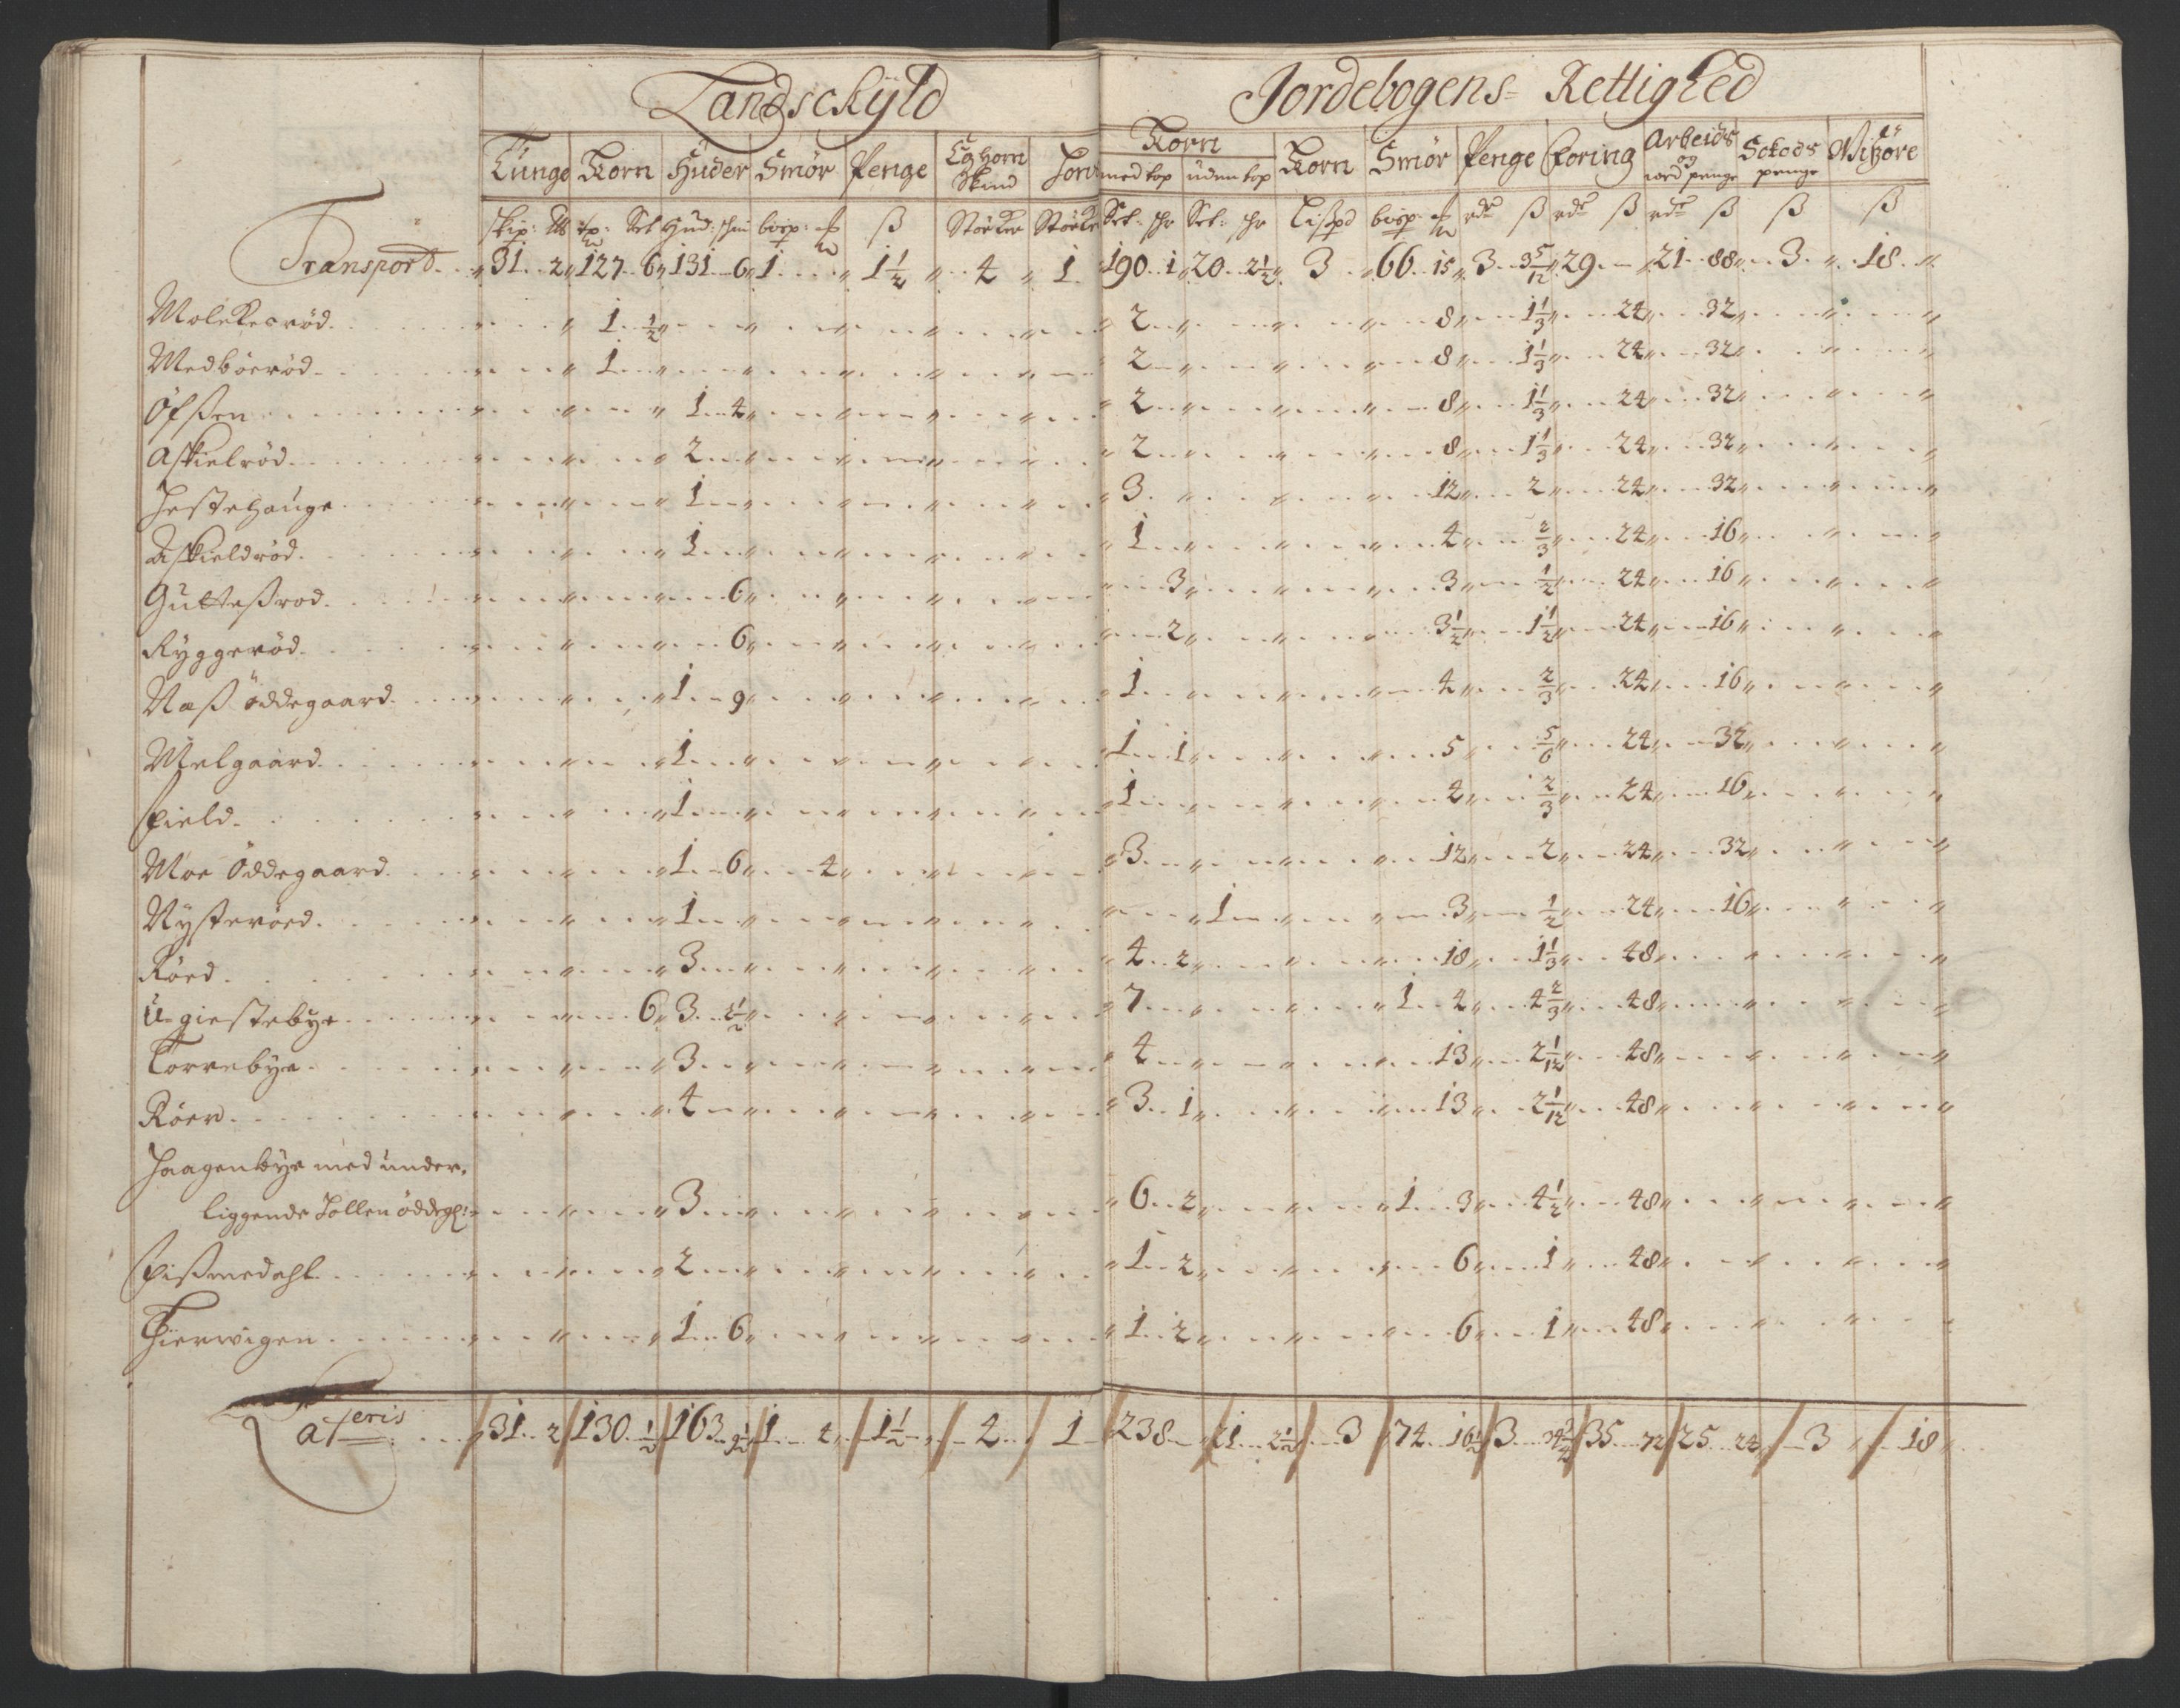 Landschÿld
Jordebogens- Rettighed
Tunge Korn Huder Smör Penge Eghorn Skind
Korn med top uden top Korn Smör Penge Foring Arbeids og ved penge Skods penge Witzöre
skip: tp: Set Hud: skin bisp: ß Stöcker Stöcker
Set: skr Set: skr Lißpd bisp: rdr ß rdr ß rdr ß ß ß
Transpord 31 2 127 6 131 6 1 1½ 4 1 190 1 20 2½ 3 66 15 3 3 5/12 29 21 88 3 18
Molekesröd 1 ½ 2 8 1⅓ 24 32
Medböeröd 1 2 8 1⅓ 24 32
Öfßen 1 4 2 8 1⅓ 24 32
Askielröd 2 2 8 1⅓ 24 32
Hestehauge 1 3 12 2 24 32
Askieldröd 1 1 4 ⅔ 24 16
Gulteßrod 6 3 3 ½ 24 16
Ryggeröd 6 2 3½ 1½ 24 16
Næß Öddegaard 1 9 1 4 ⅔ 24 16
Melgaard 1 1 1 5 5/6 24 32
Field 1 1 4 ⅔ 24 16
Moe Öddegaard 1 6 4 3 12 2 24 32
Nysteröed 1 1 3 ½ 24 16
Röed 3 4 2 18 1⅓ 48
U-giestebye 6 3 1½ 7 1 4 4⅔ 48
Torrebye 3 4 13 2 1/12 48
Röer 4 3 1 13 2 1/12 48
Haagenbye med under-
liggende Tollen öddeg: 3 6 2 1 3 4½ 48
Fißmedahl 2 1 2 6 1 48
Thierwigen 1 6 1 2 6 1 48
31 2 130 ½ 163 1 4 1½ 4 1 238 21 2½ 3 74 16½ 3 35 72 25 24 3 18